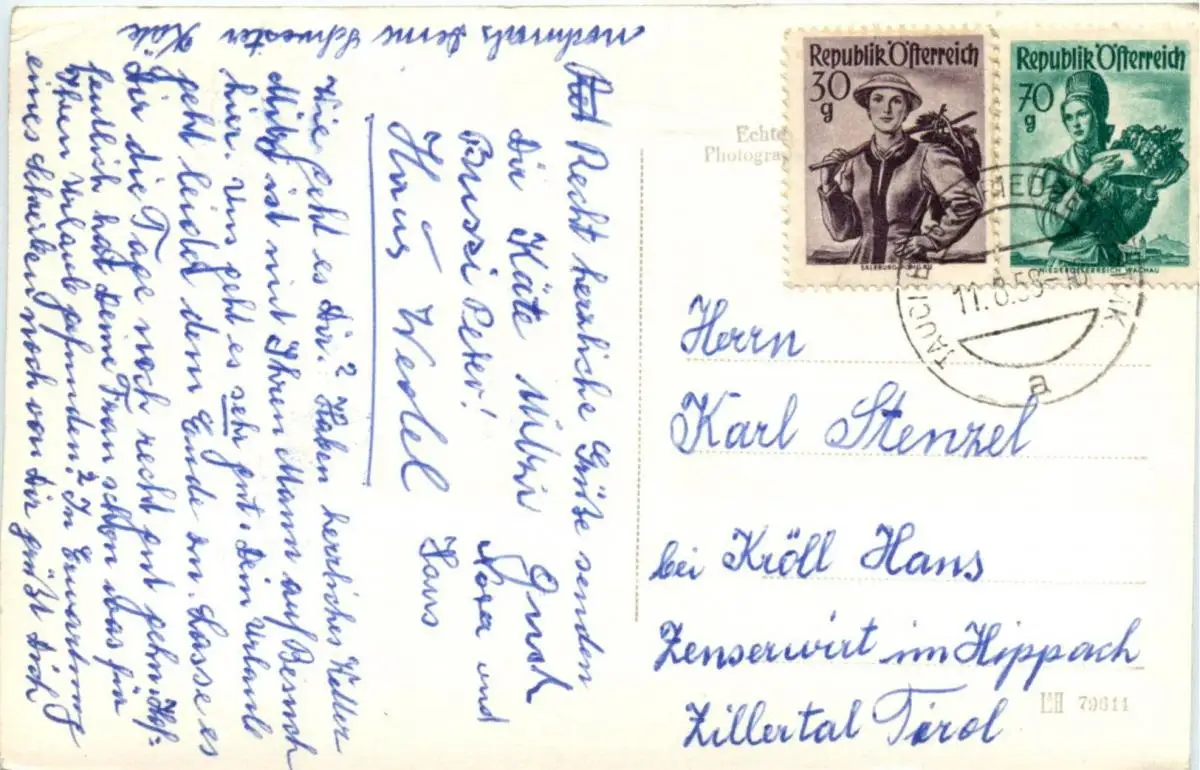 Republik Österreich
30 g
SALZBURG, PONGAU
Republik Österreich
70 g
NIEDERÖSTERREICH, WACHAU
11.8.58
a
Echte
Photogra
Herrn
Karl Stenzel
bei Kröll Hans
Zenserwirt im Hippach
Zillertal Tirol
79611
Recht herzliche Grüße senden
Dir Käte Mitzi Ernst
Bussi Peter! und
Hans Wedel Hans
Wie geht es Dir? Haben herrliches Wetter
Mitzi ist mit Ihren Mann auf Besuch
hier. Uns geht es sehr gut. Dein Urlaub
geht leider dem Ende an. Lasse es
Dir die Tage noch recht gut gehn. Hof-
fentlich hat deine Frau schon was für
Ihren Urlaub gefunden? In Erwartung
eines Schreiben noch von Dir grüßt Dich
nochmals Deine Schwester Käte